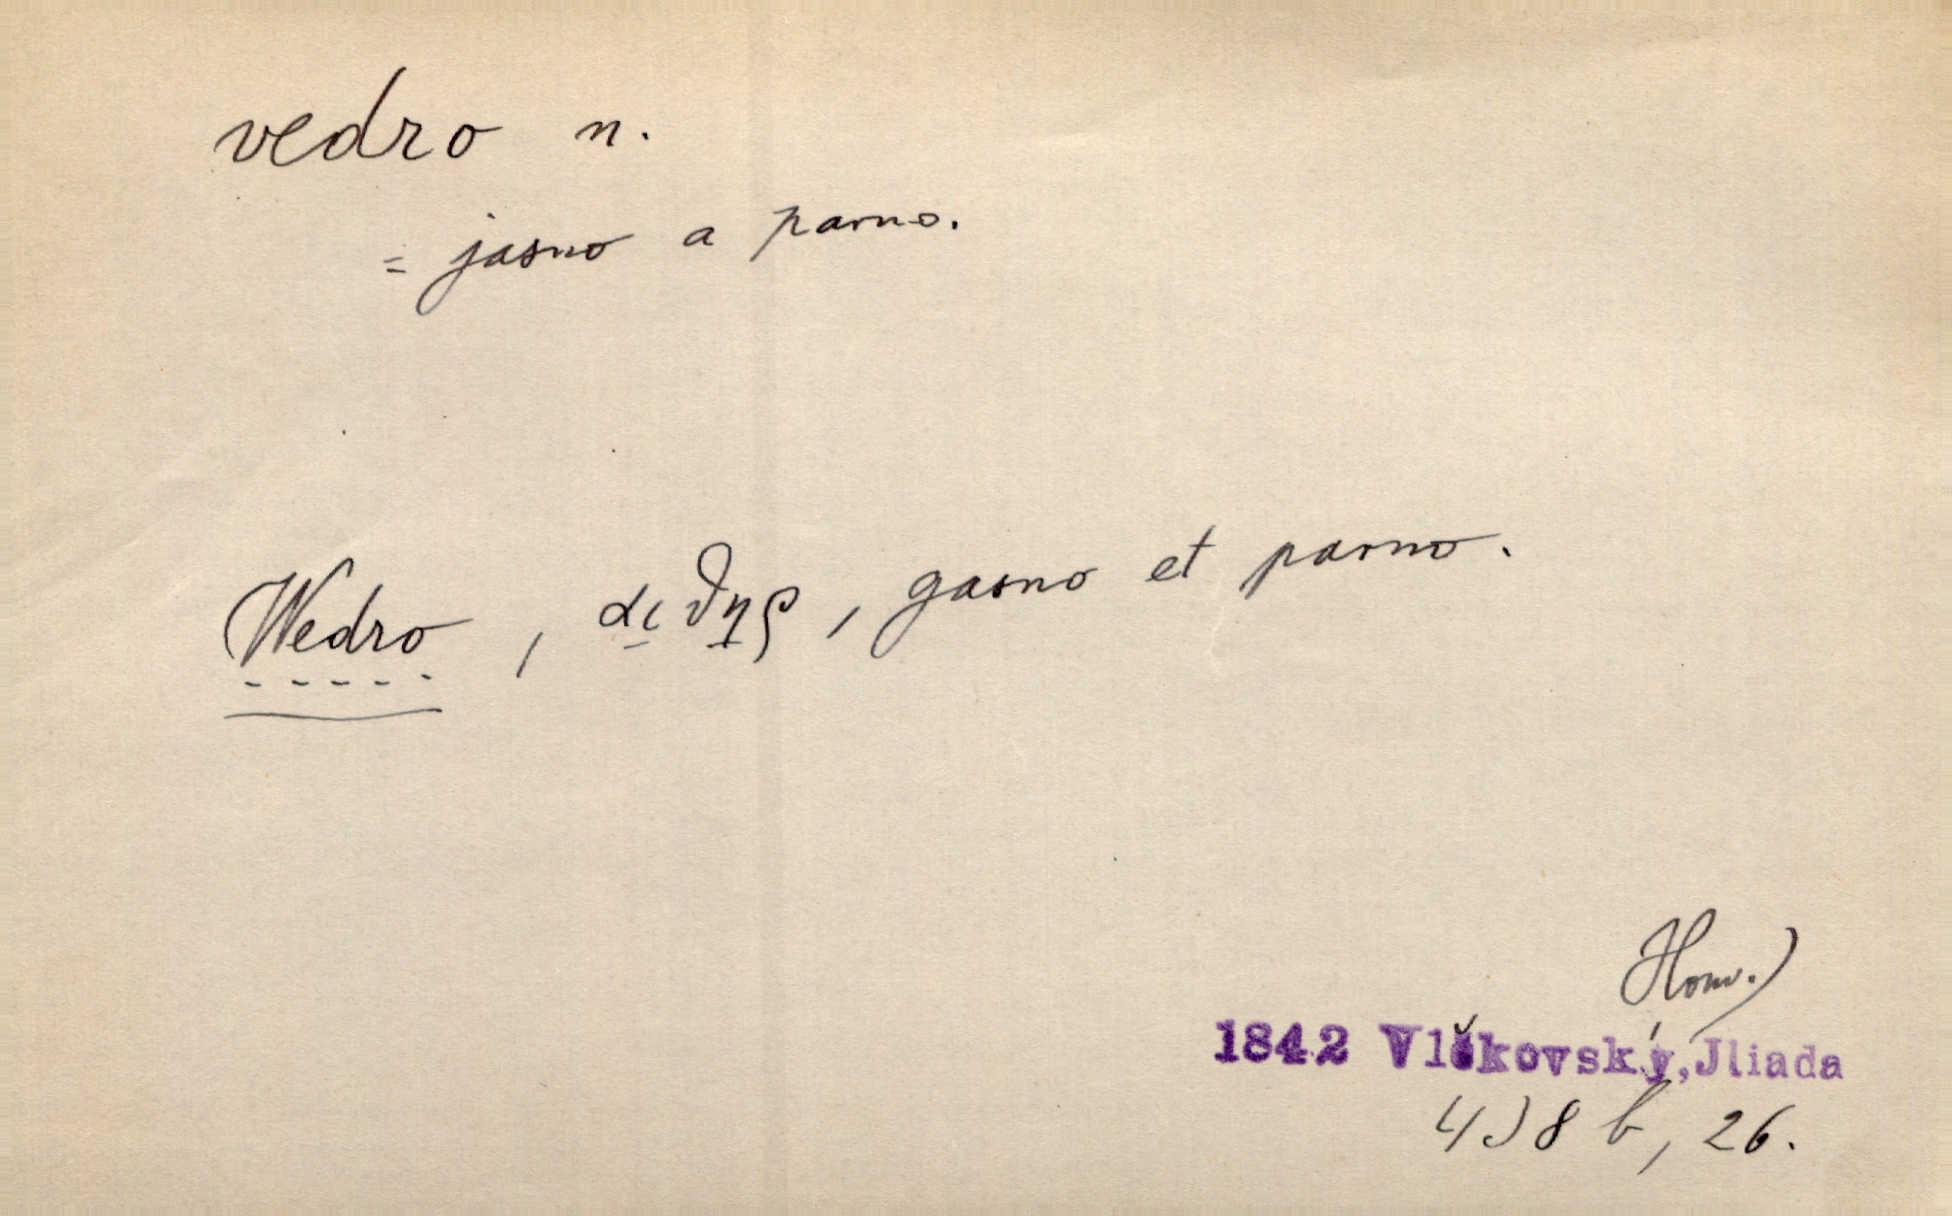 vedro n.
= jasno a parno.
Wedro, αιϑηρ, gasno et parno.
Hom.)
1842 Vlčkovský, Jliada
438 b, 26.